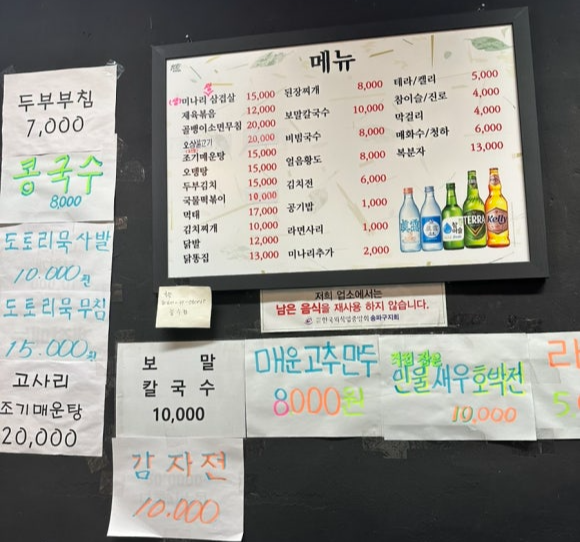 메뉴
미나리 삼겹살 15,000
제육볶음 12,000
골뱅이소면무침 20,000
오삼불고기 20,000
조기매운탕 15,000
오뎅탕 15,000
두부김치 15,000
국물떡볶이 10,000
먹태 17,000
김치찌개 10,000
닭발 12,000
닭똥집 13,000
된장찌개 8,000
보말칼국수 10,000
비빔국수 8,000
얼음황도 8,000
김치전 6,000
공기밥 1,000
라면사리 1,000
미나리추가 2,000
테라/켈리 5,000
참이슬/진로 4,000
막걸리 4,000
매화수/청하 6,000
복분자 13,000
TERRA
Kelly
저희 업소에서는
남은 음식을 재사용 하지 않습니다.
한국외식업중앙회 송파구지회
두부부침
7,000
콩국수
8,000
도토리묵사발
10.000원
도토리묵무침
15.000원
고사리
조기매운탕
20,000
보말
칼국수
10,000
감자전
10.000
매운고추만두
8000원
민물새우호박전
10.000